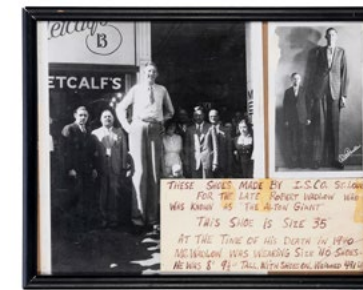 etcalf's
B
ETCALF'S
THESE SHOES MADE BY I.S.CO. ST. LOUIS
FOR THE LATE ROBERT WADLOW WHO
WAS KNOWN AS "THE ALTON GIANT"
THIS SHOE IS SIZE 35
AT THE TIME OF HIS DEATH IN 1940
MR. WADLOW WAS WEARING SIZE 40 SHOES
HE WAS 8' 9½" TALL WITH SHOES ON, WEIGHED 491